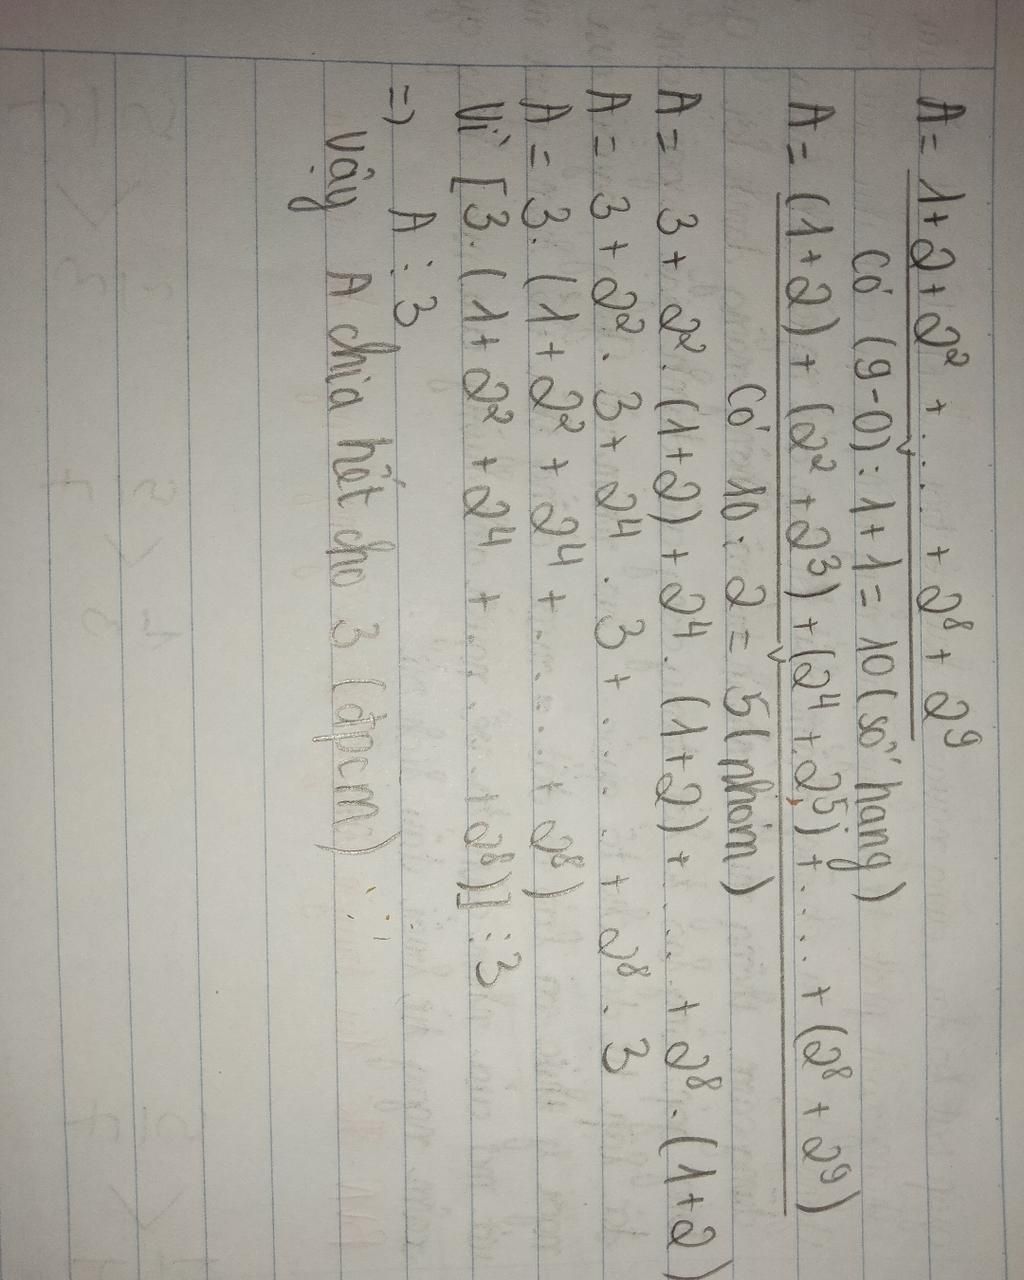 A = 1 + 2 + 2² + .... + 2⁸ + 2⁹
Có (9-0) : 1 + 1 = 10 (số hạng)
A = (1 + 2) + (2² + 2³) + (2⁴ + 2⁵) + .... + (2⁸ + 2⁹)
Có 10 : 2 = 5 (nhóm)
A = 3 + 2² . (1+2) + 2⁴ . (1+2) + .... + 2⁸ . (1+2)
A = 3 + 2² . 3 + 2⁴ . 3 + ..... + 2⁸ . 3
A = 3 . (1 + 2² + 2⁴ + ..... + 2⁸)
Vì [3 . (1 + 2² + 2⁴ + ..... + 2⁸)] ⋮ 3
=) A ⋮ 3
Vậy A chia hết cho 3 (đpcm)